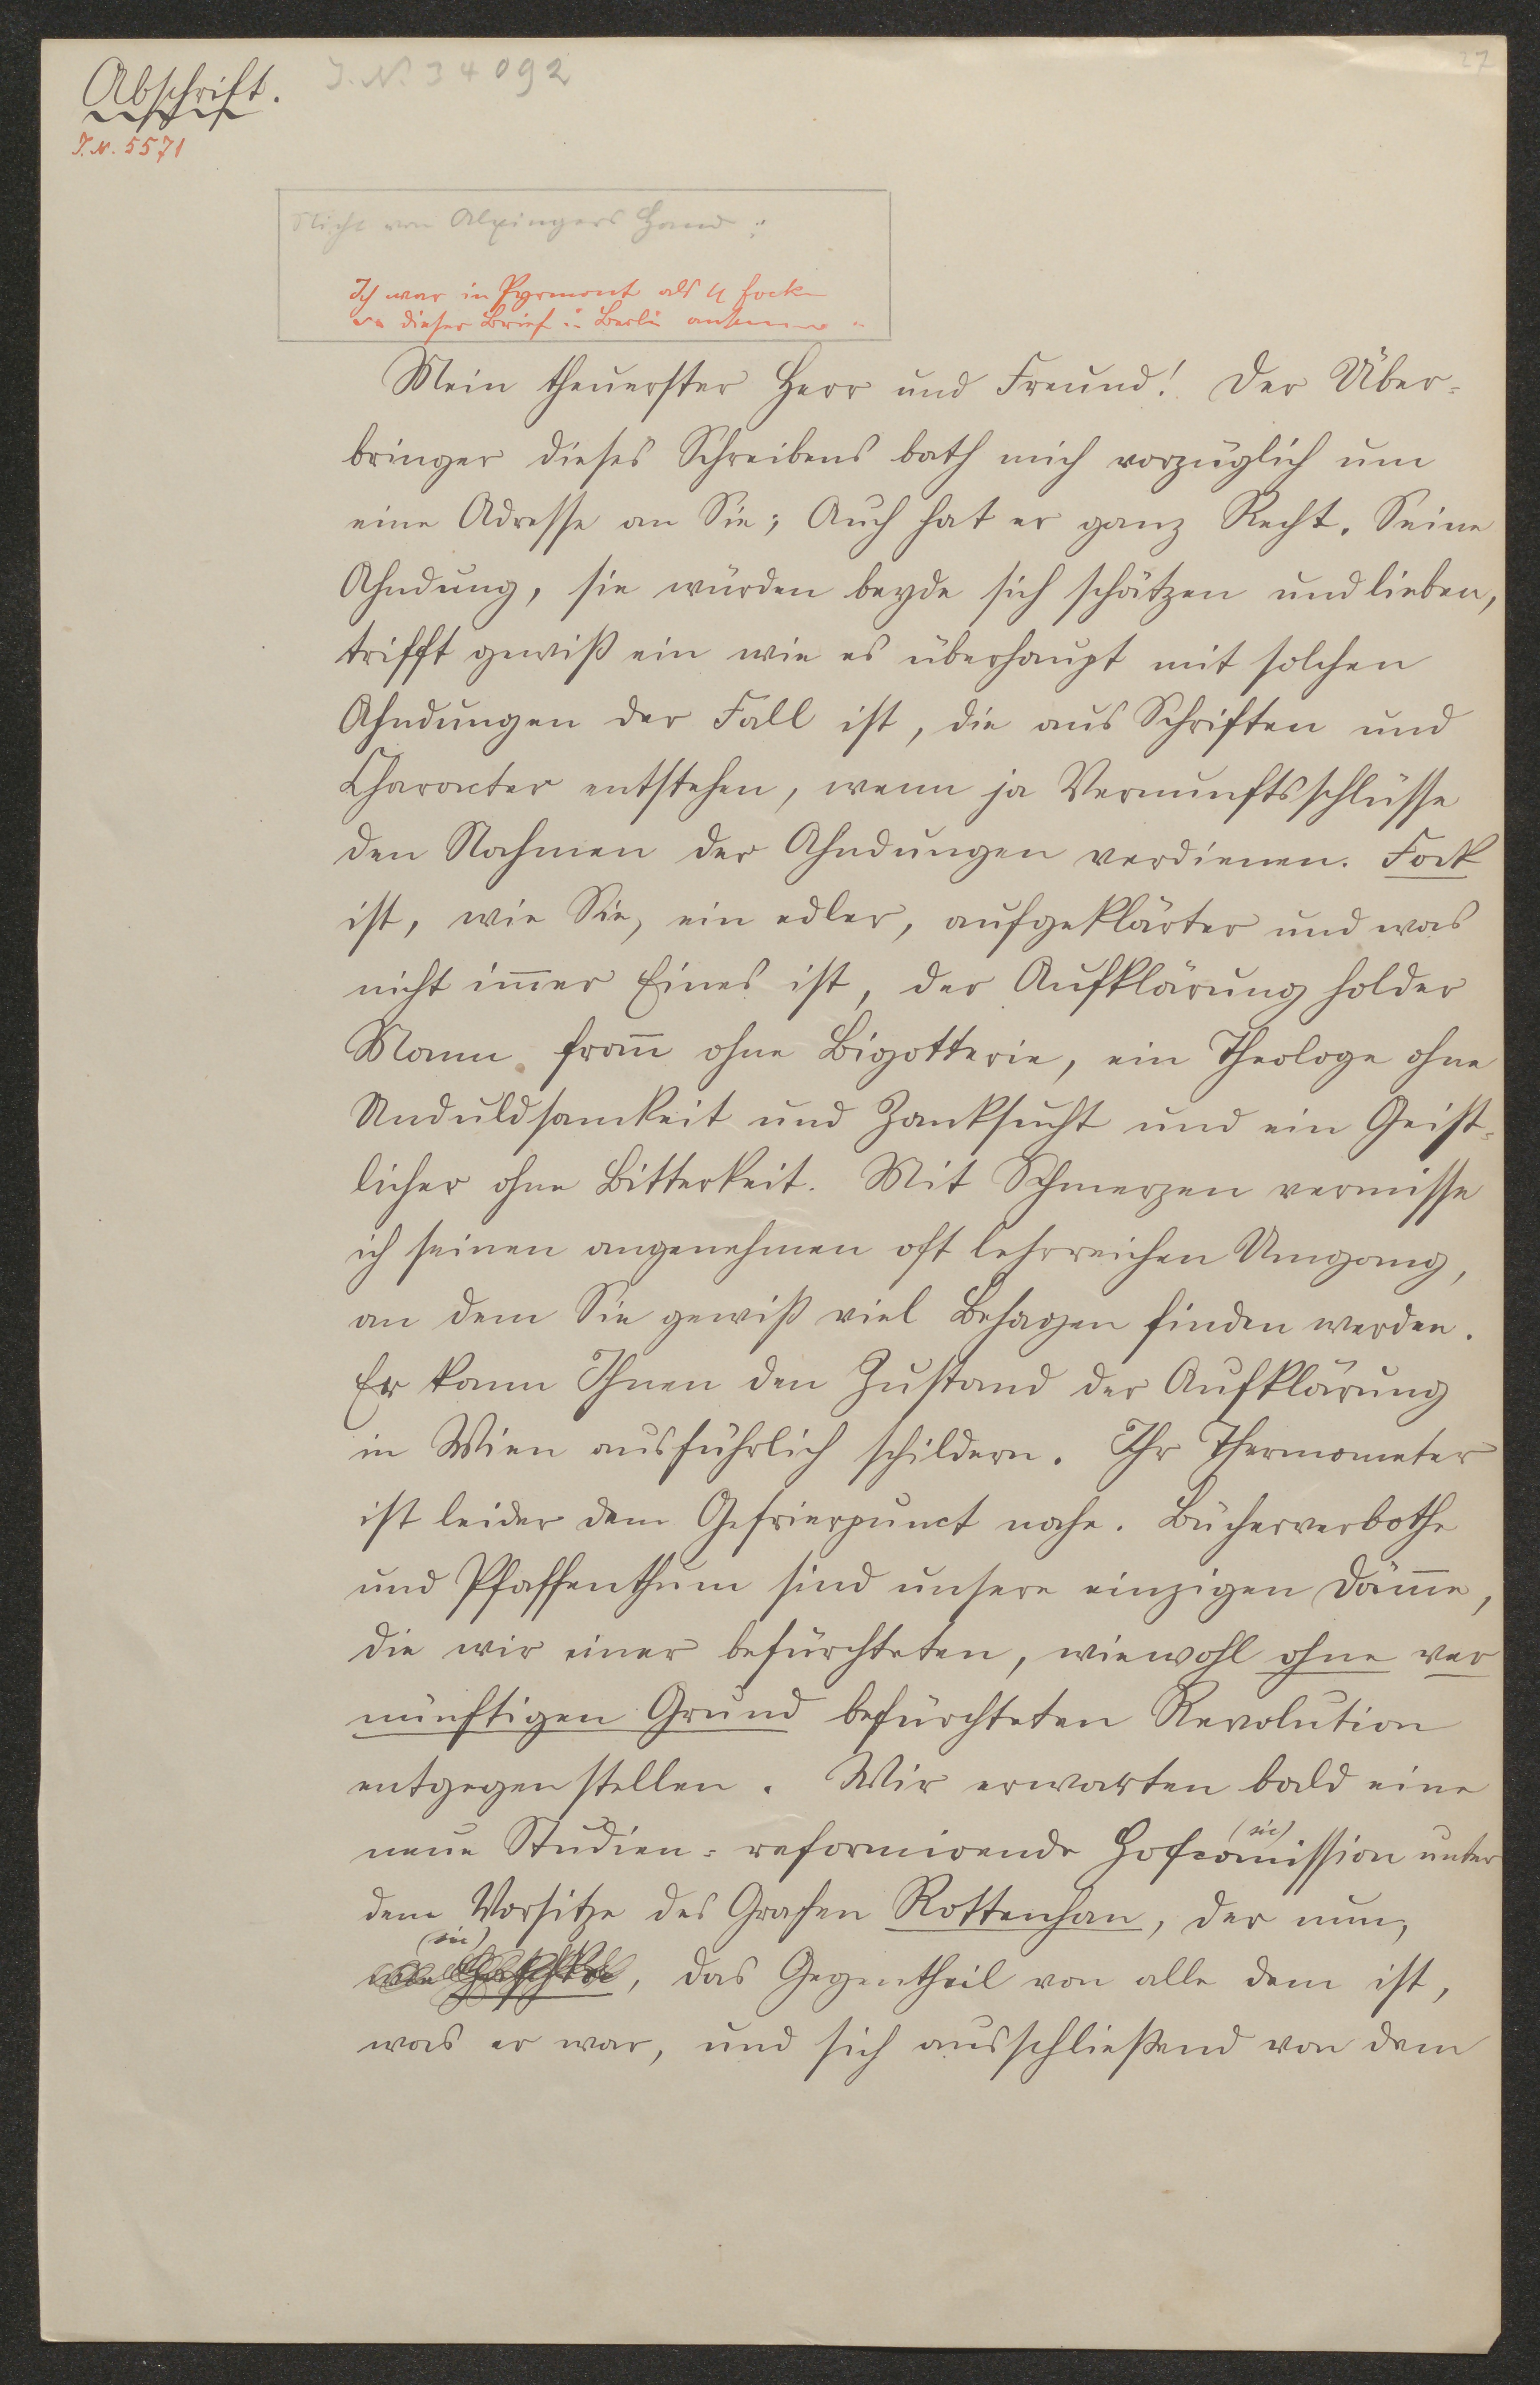 Abschrift.
J. N. 34092
27
J. N. 5571
Nicht von Alxingers Hand:
Ich war in Pyrmont als H Fock
dieser Brief in Berlin
Mein theuerster Herr und Freund! Der Über-
bringer dieses Schreibens bath mich vorzüglich um
eine Adresse an Sie; Auch hat er ganz Recht. Seine
Ahndung, sie würden beyde sich schätzen und lieben,
trifft gewiß ein wie es überhaupt mit solchen
Ahndungen der Fall ist, die aus Schriften und
Character entstehen, wenn ja Vernunftsschlüsse
den Nahmen der Ahndungen verdienen. Fock
ist, wie Sie, ein edler, aufgeklärter und was
nicht im̄er Eines ist, der Aufklärung holder
Mann from̄ ohne Bigotterie, ein Theologe ohne
Unduldsamkeit und Zanksucht und ein Geist-
licher ohne Bitterkeit. Mit Schmerzen vermisse
ich seinen angenehmen oft lehrreichen Umgang,
an dem Sie gewiß viel Behagen finden werden.
Er kann Ihnen den Zustand der Aufklärung
in Wien ausführlich schildern. Ihr Thermometer
ist leider dem Gefrierpunct nahe. Bücherverbothe
und Pfaffenthum sind unsere einzigen Däm̄e,
die wir einer befürchteten, wiewohl ohne ver
nünftigen Grund befürchteten Revolution
entgegen stellen. Wir erwarten bald eine
neue Studien-reformirende Hofcom̄ission unter
(sic)
dem Vorsitze des Grafen Rottenhan, der nun,
(sic)
, das Gegentheil von alle dem ist,
was er war, und sich ausschließend von dem